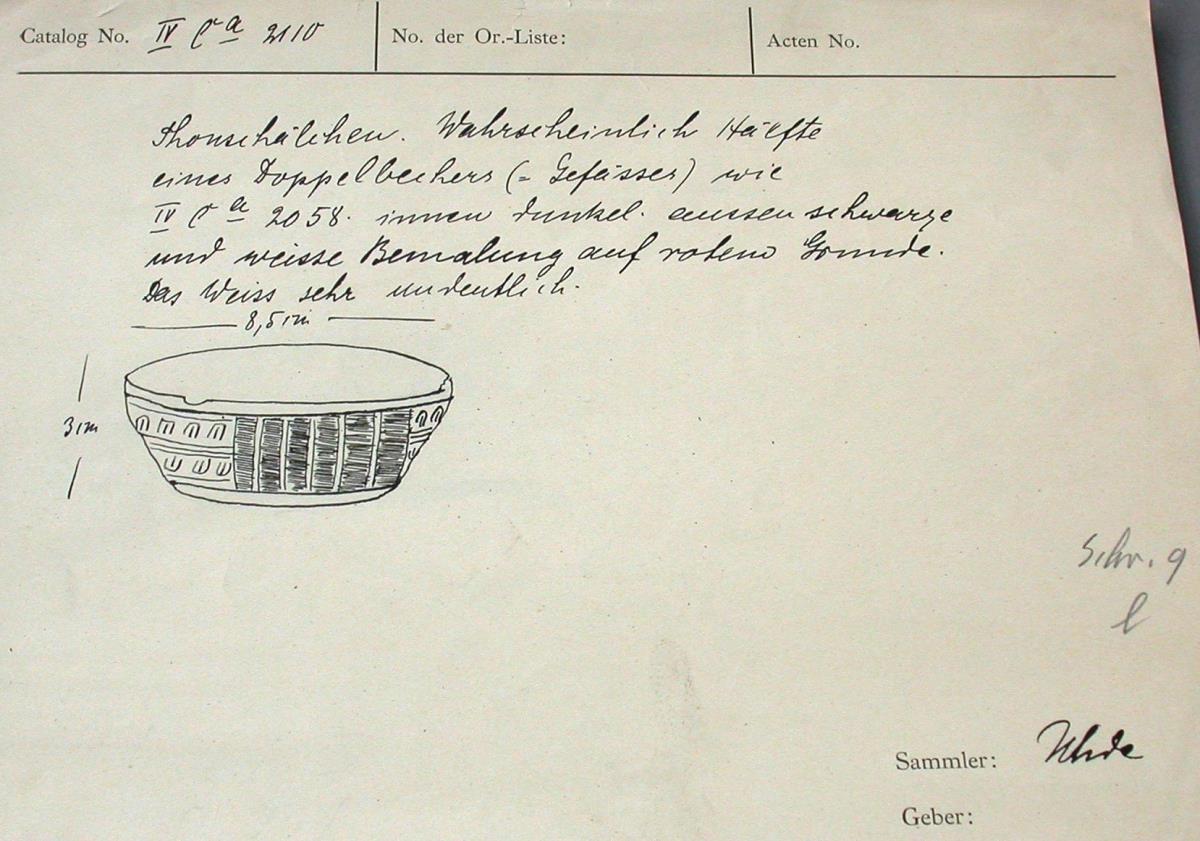 Catalog No. IV Ca 2110 No. der Or.-Liste: Acten No.
Thonschälchen. Wahrscheinlich Hälfte
eines Doppelbechers (= Gefässes) wie
IV Ca 2058. innen dunkel. aussen schwarze
und weisse Bemalung auf rotem Grunde.
Das Weiss sehr undeutlich.
8,5 cm
3 cm
Schr. 9
l
Sammler: Uhde
Geber: